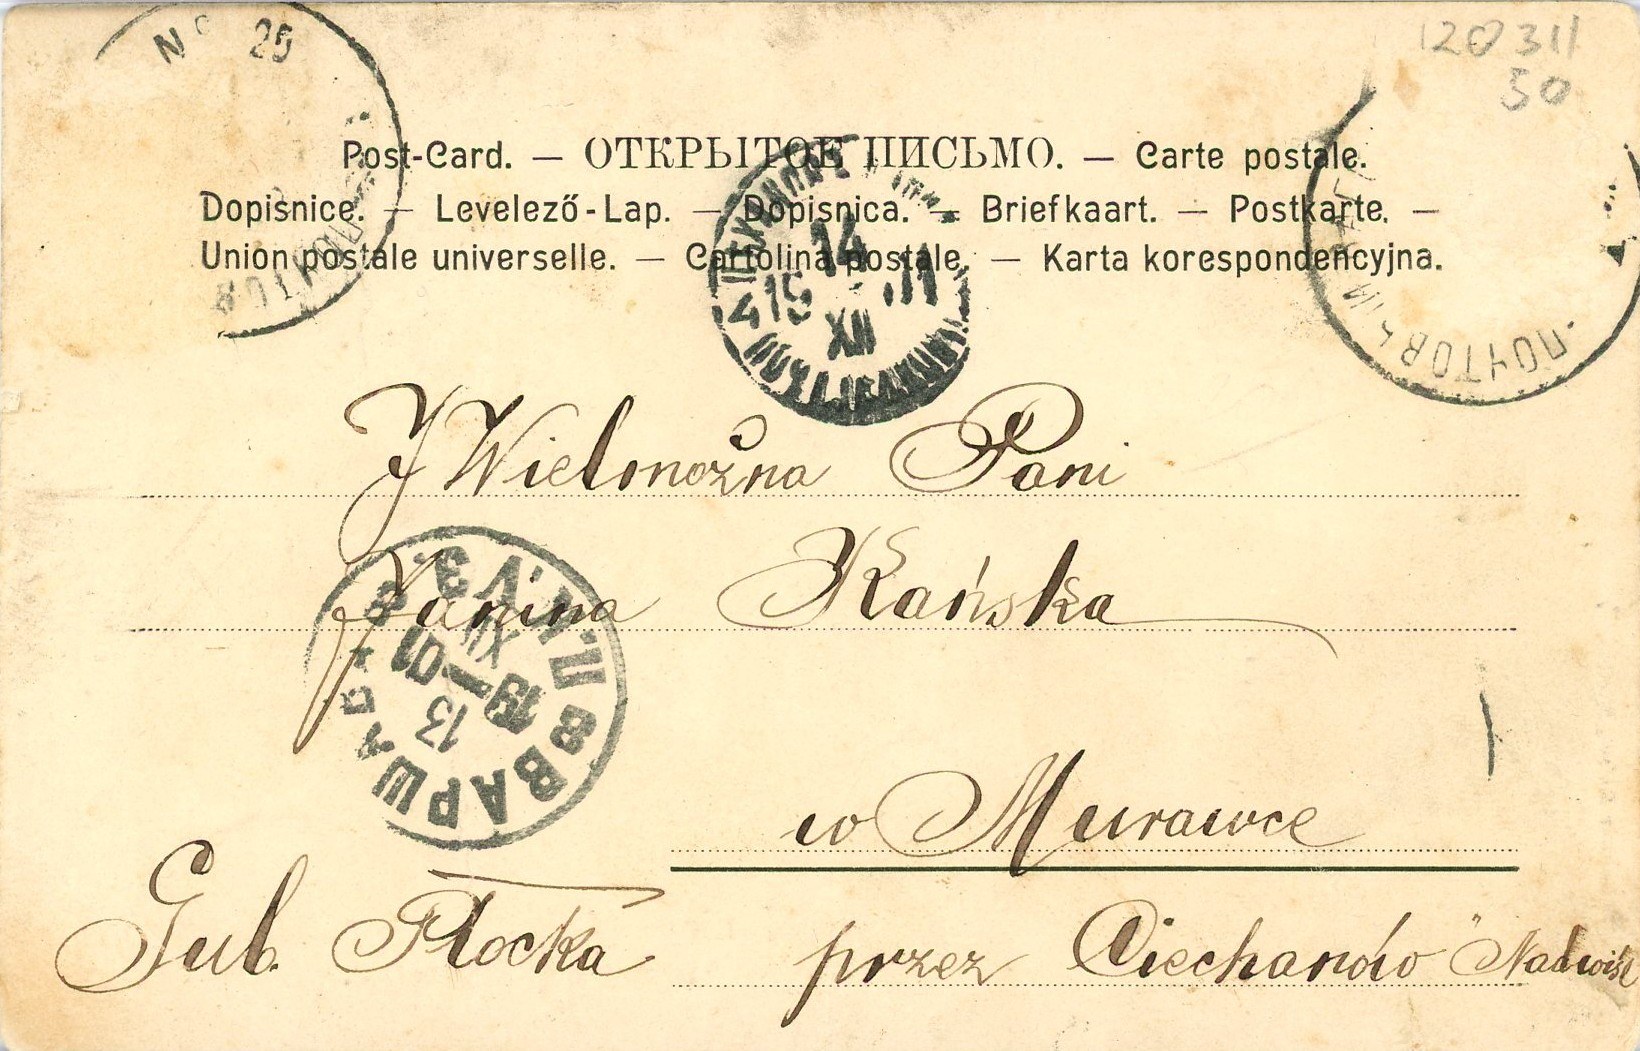 120311
50
No 25
Post-Card. — ОТКРЫТОЕ ПИСЬМО. — Carte postale.
Dopisnice. — Levelező-Lap. — Dopisnica. — Briefkaart. — Postkarte. —
Union postale universelle. — Cartolina postale. — Karta korespondencyjna.
ПОЧТОВЫЙ ВАГ
14
XII
JWielmożna Pani
Janina Kańska
ВАРШАВА
13
XII
19—01
w Murawce
Gub. Płocka
przez Ciechanów "Nadwiśl